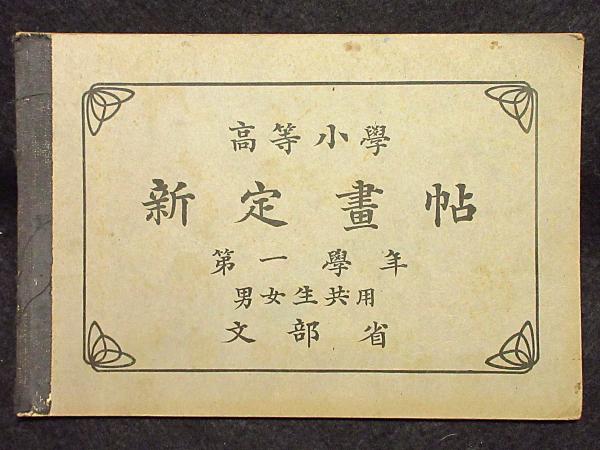 高等小學
新定畫帖
第一學年
男女生共用
文部省